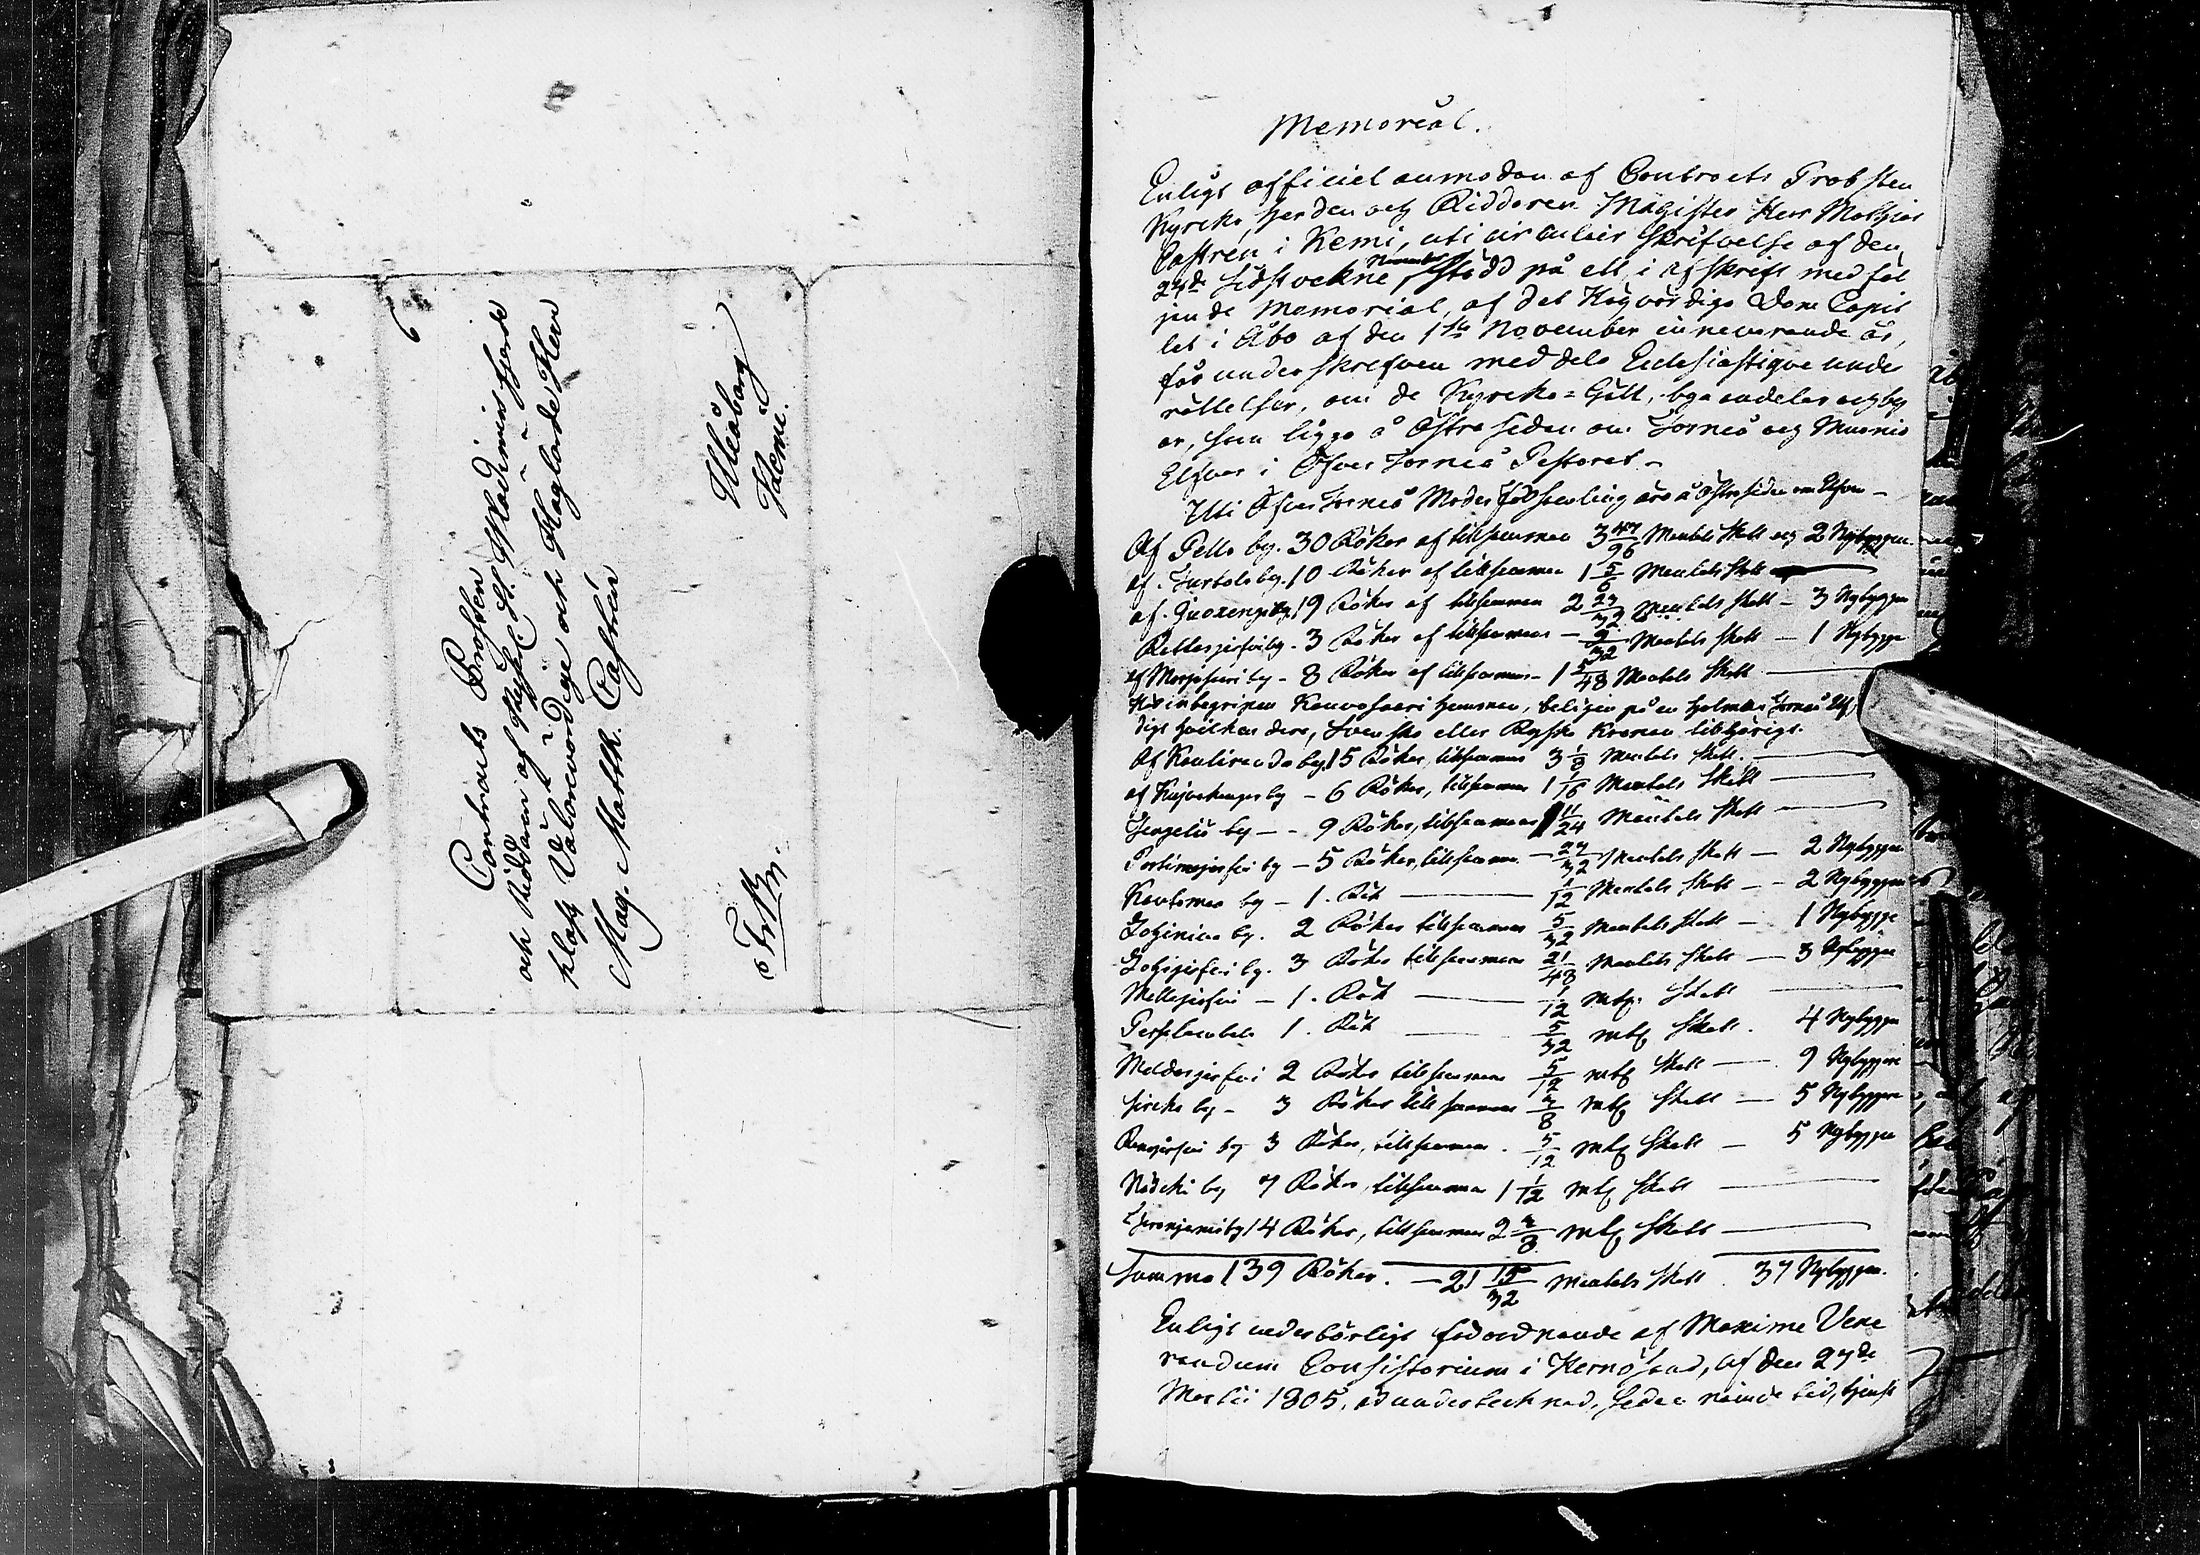 Contracts Prosten
och Riddaren af Kejsl. St. Wladimirs fjerde
klass Välborne vördige och Höglärde Herr
Mag. Matth. Castrén
Uleåborg
Kemi.
Fr. Br.
6
Memorial.
Enligt officiel anmodan af Contracts Probsten
Kyrcko herden och Riddaren Magister Herr Mathias
Castrén i Kemi, uti circulair skrifvelse af den
27de sidstvekne November, stödd på ett, i afskrift med föl
jande Memorial, af det Högvördige Dom Capit
let i Åbo af den 1ste November innevarande år,
får underskrefven meddela Ecclesiastique unde
rättelser, om de Kyrcko-Gäll, byaandelar och by
ar, som ligga å Östra sidan om Torneå och Muonio
Elfvar i Öfver Torneå Pastorat.
Uti Öfver Torneå Moderförsamling äro å Östra sidan om Elfven -
Af Pello by. 30 Rökar af tillsamman 3 47/96 Mantals skatt och 2 Nybyggen.
af Turtola by. 10 Rökar af tillsamman 1 5/6 Mantals skatt
af Juoxengi by. 19 Rökar af tillsamman 2 23/32 Mantals skatt - 3 Nybyggen
Rattasjerfvi by. 3 Rökar af tillsamman - 9/32 Mantals skatt - 1 Nybygge
af Marjosari by - 8 Rökar af tillsamman - 1 5/48 Mantals skatt
Häri inbegripen Kauvosaari hemman, beligen på en holme i Torneå Elf,
digt hvilken dera, Svenska eller Ryska Kronan tillhörigt.
Af Kauliranda by 15 Rökar, tillsamman 3 1/8 Mantals skatt.
af Kuivakangas by - 6 Rökar, tillsamman 1 1/16 Mantals skatt
Tengeliö by - - 9 Rökar, tillsamman 1 11/24 Mantals skatt
Portimojerfvi by - 5 Rökar, tillsamman - 27/32 Mantals skatt - 2 Nybyggen
Kantomaa by - 1. Rök 1/12 Mantals skatt - - 2 Nybyggen
Lohiniva by. 2 Rökar tillsamman 5/32 Mantals skatt - 1 Nybygge
Lohijerfvi by. 3 Rökar tillsamman 21/48 Mantals skatt - 3 Nybyggen
Mellajerfvi - 1. Rök 1/12 mtl. skatt
1. Rök 5/32 mtl skatt. 4 Nybyggen
Meldosjerfvi 2 Rökar tillsamman 5/12 mtl skatt - 9 Nybyggen
Sirckka by - 3 Rökar tillsamman 3/8 mtl skatt - 5 Nybyggen
Raanujerfvi by 3 Rökar, tillsamman. 5/12 mtl skatt - 5 Nybyggen
Nåucki by 7 Rökar, tillsamman 1 1/12 mtl skatt
by 14 Rökar, tillsamman 2 3/8 mtl skatt
Summa 139 Rökar. - 21 15/32 Mantals skatt. 37 Nybyggen.
Enligt vederbörligt förordnande af Maxime Vene
randum Consistorium i Hernösand, af den 27de
Martii 1805, är undertecknad, sedan nämde tid, tjenst